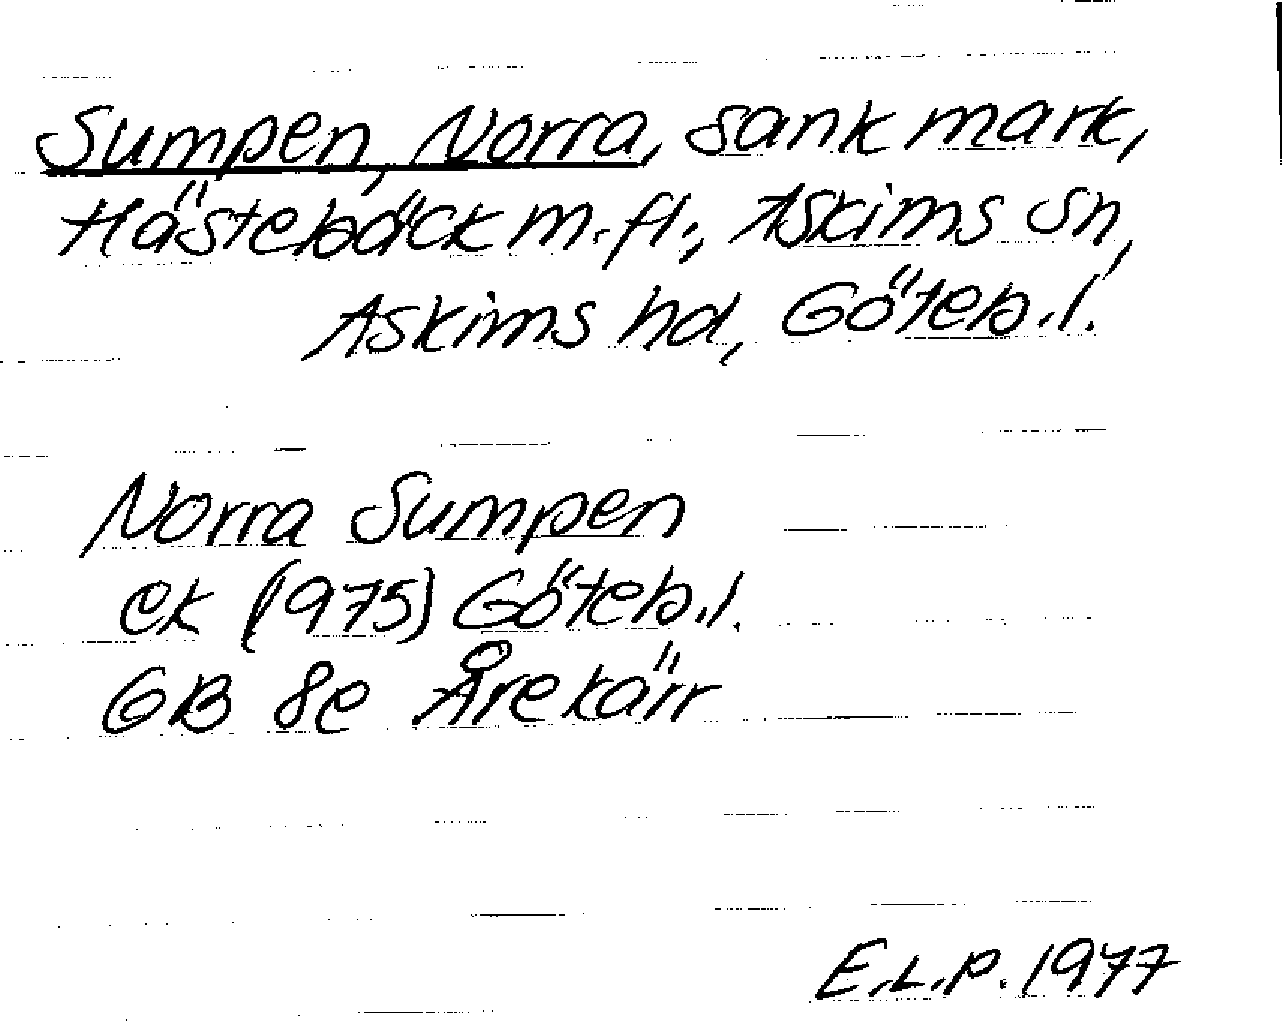 Sumpen, Norra, sank mark,
Hästebäck m.fl., Askims sn,
Askims hd, Göteb.l.
Norra Sumpen
ek (1975) Göteb.l.
GB 8e Årekärr
E.L.P. 1977